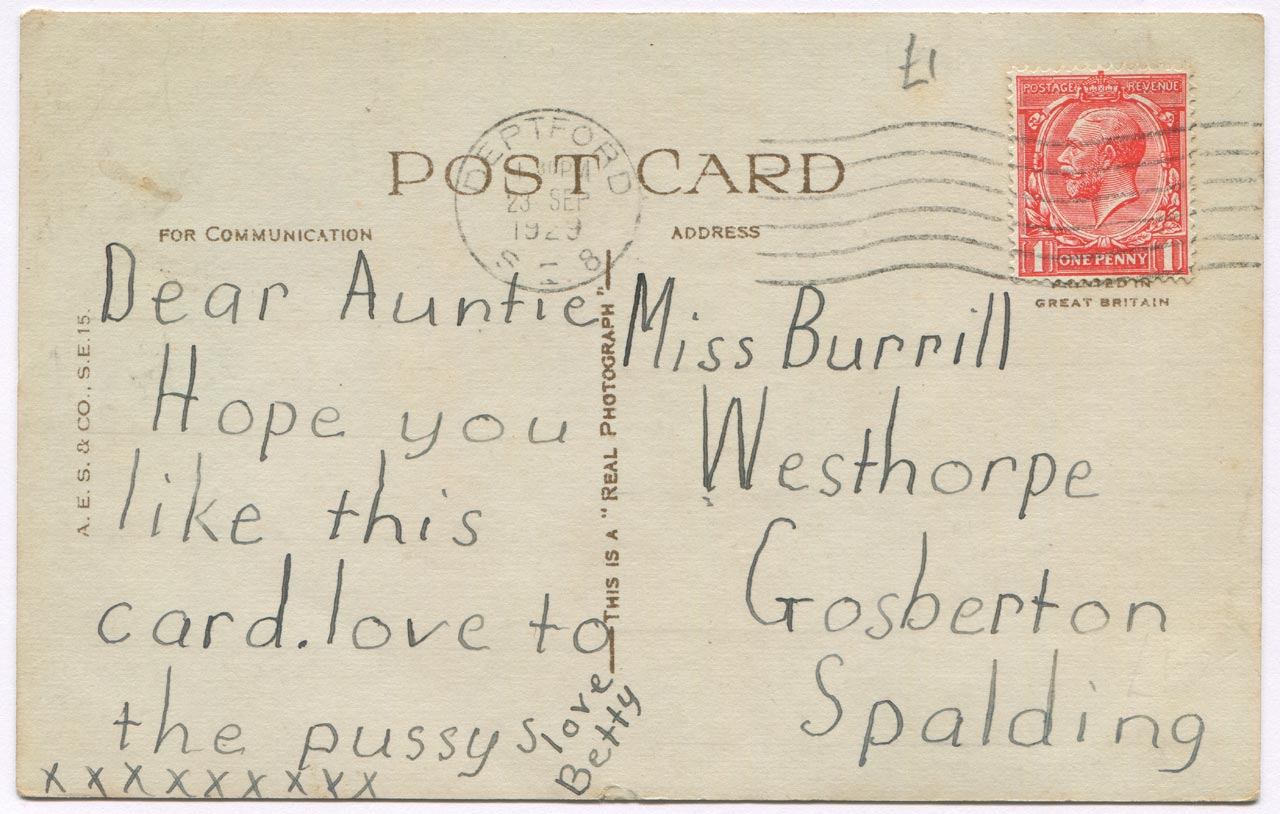 £1
POSTAGE REVENUE
1 ONE PENNY 1
DEPTFORD
PM
23 SEP
1929
S.E.8
POST CARD
FOR COMMUNICATION
ADDRESS
PRINTED IN
GREAT BRITAIN
A.E.S. & CO., S.E.15.
THIS IS A "REAL PHOTOGRAPH"
Dear Auntie
Hope you
like this
card. love to
the pussys
love
Betty
x x x x x x x x x
Miss Burrill
Westhorpe
Gosberton
Spalding